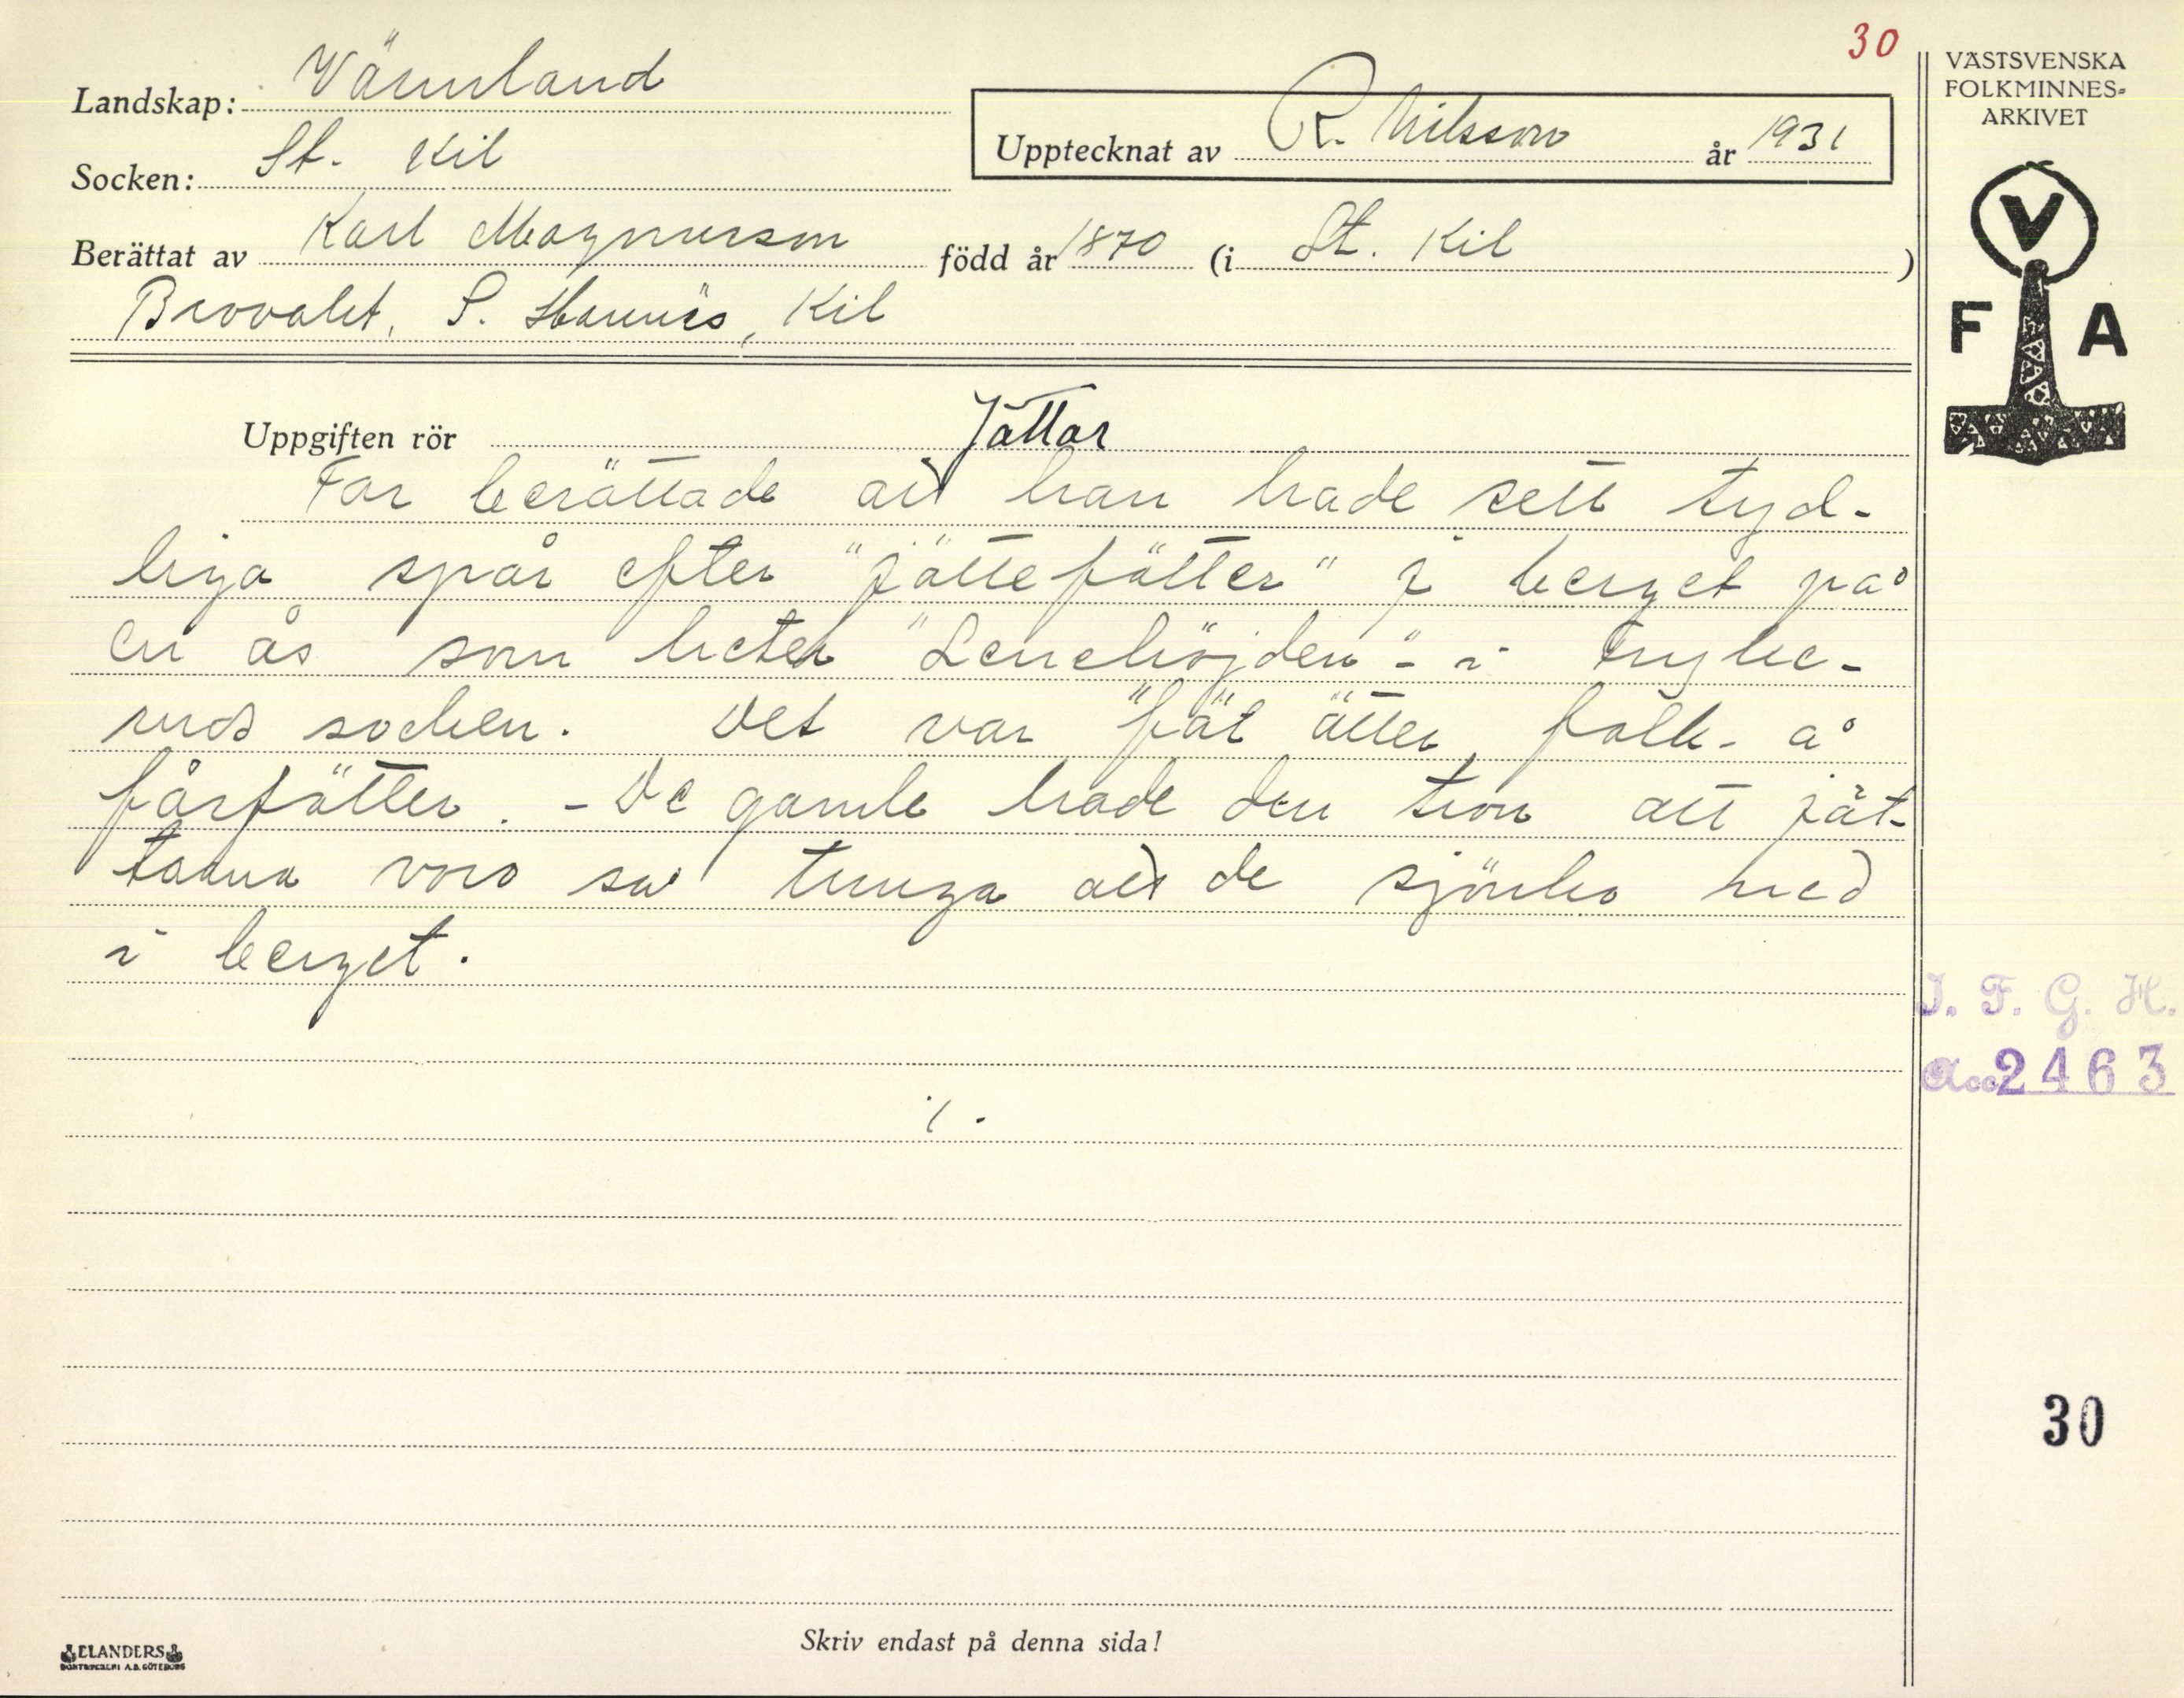 30
VÄSTSVENSKA
FOLKMINNES-
ARKIVET
Landskap: Värmland
Upptecknat av R. Nilsson år 1931
Socken: St. Kil
Berättat av Karl Magnusson född år 1870 (i St. Kil)
S. Hannäs, Kil
V
F A
Uppgiften rör Jättar
Far berättade att han hade sett tyd-
liga spår efter "jättefötter" i berget på
en ås som heter "Lenehöjden" - i Fryke-
ruds socken. Det var "fät ätter folk- å
fårfötter. - De gamle hade den tron att jät-
tarna voro så tunga att de sjönko ned
i berget.
I. F. G. H.
Acc 2463
./.
30
Skriv endast på denna sida!
ELANDERS
BOKTRYCKERI A.B. GÖTEBORG